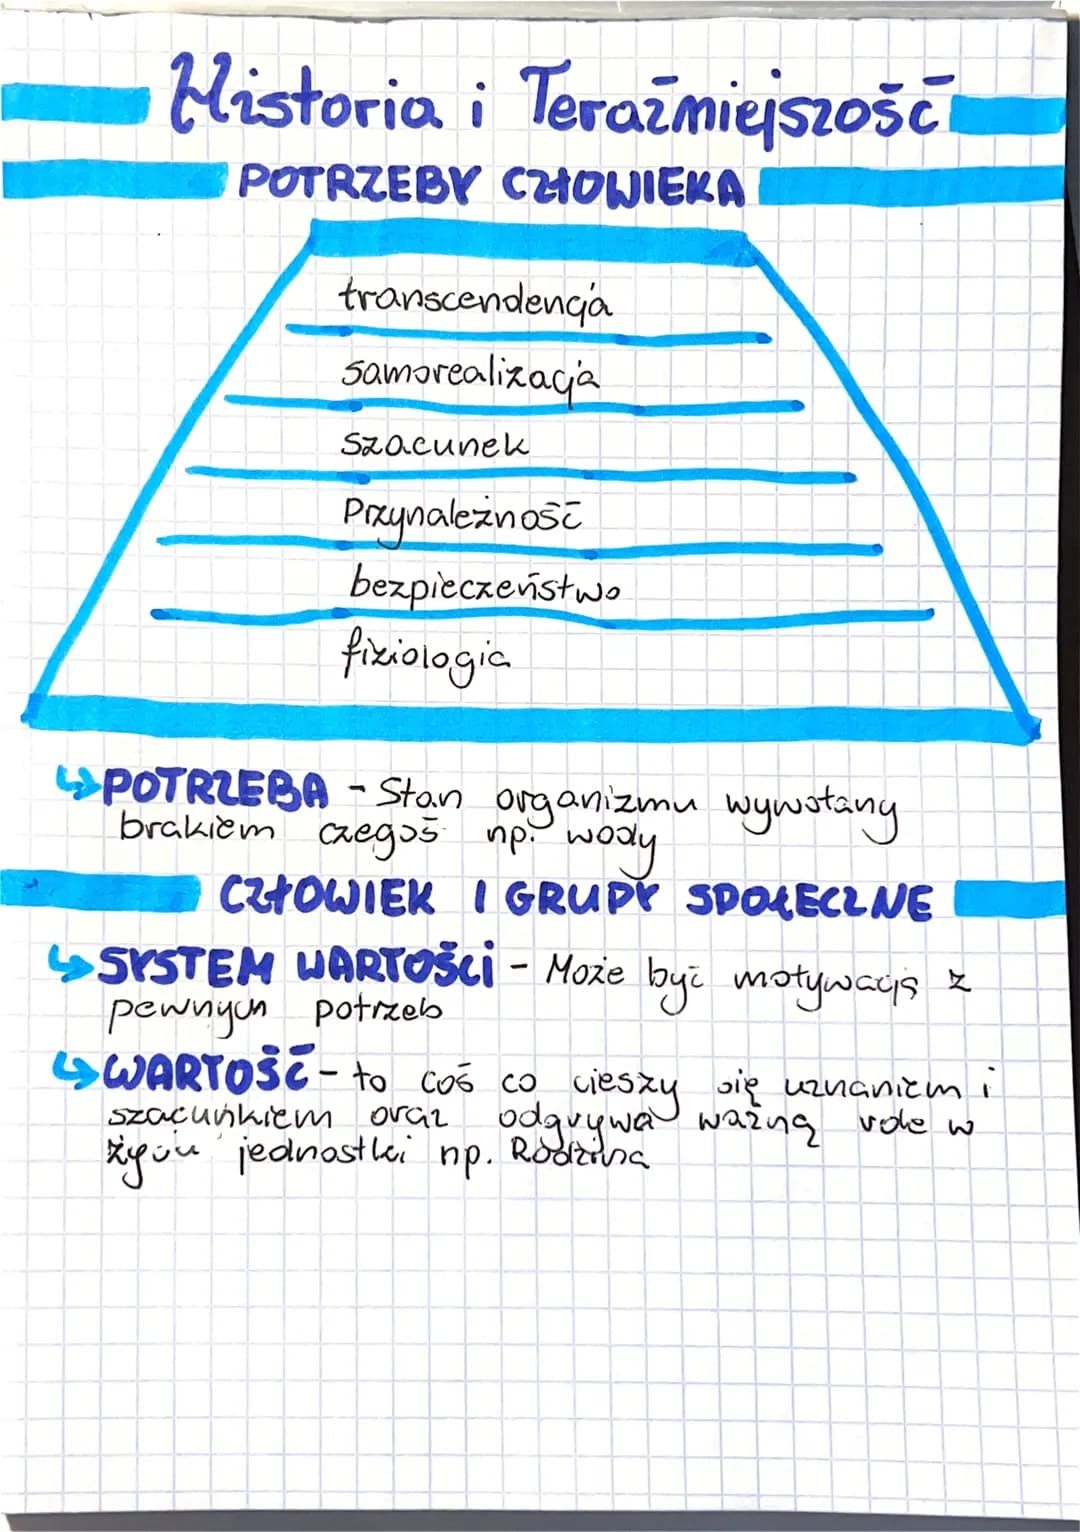 Historia i Teraźniejszość
POTRZEBY CZŁOWIEKA
transcendencja
samorealizacja
szacunek
Przynależność
bezpieczeństwo
fizjologia
↳POTRZEBA - Stan organizmu wywołany
brakiem czegoś np. wody
CZŁOWIEK I GRUPY SPOŁECZNE
↳SYSTEM WARTOŚCI - Może być motywacją z
pewnych potrzeb
↳WARTOŚĆ - to coś co cieszy się uznaniem i
szacunkiem oraz odgrywa ważną role w
życiu jednostki np. Rodzina